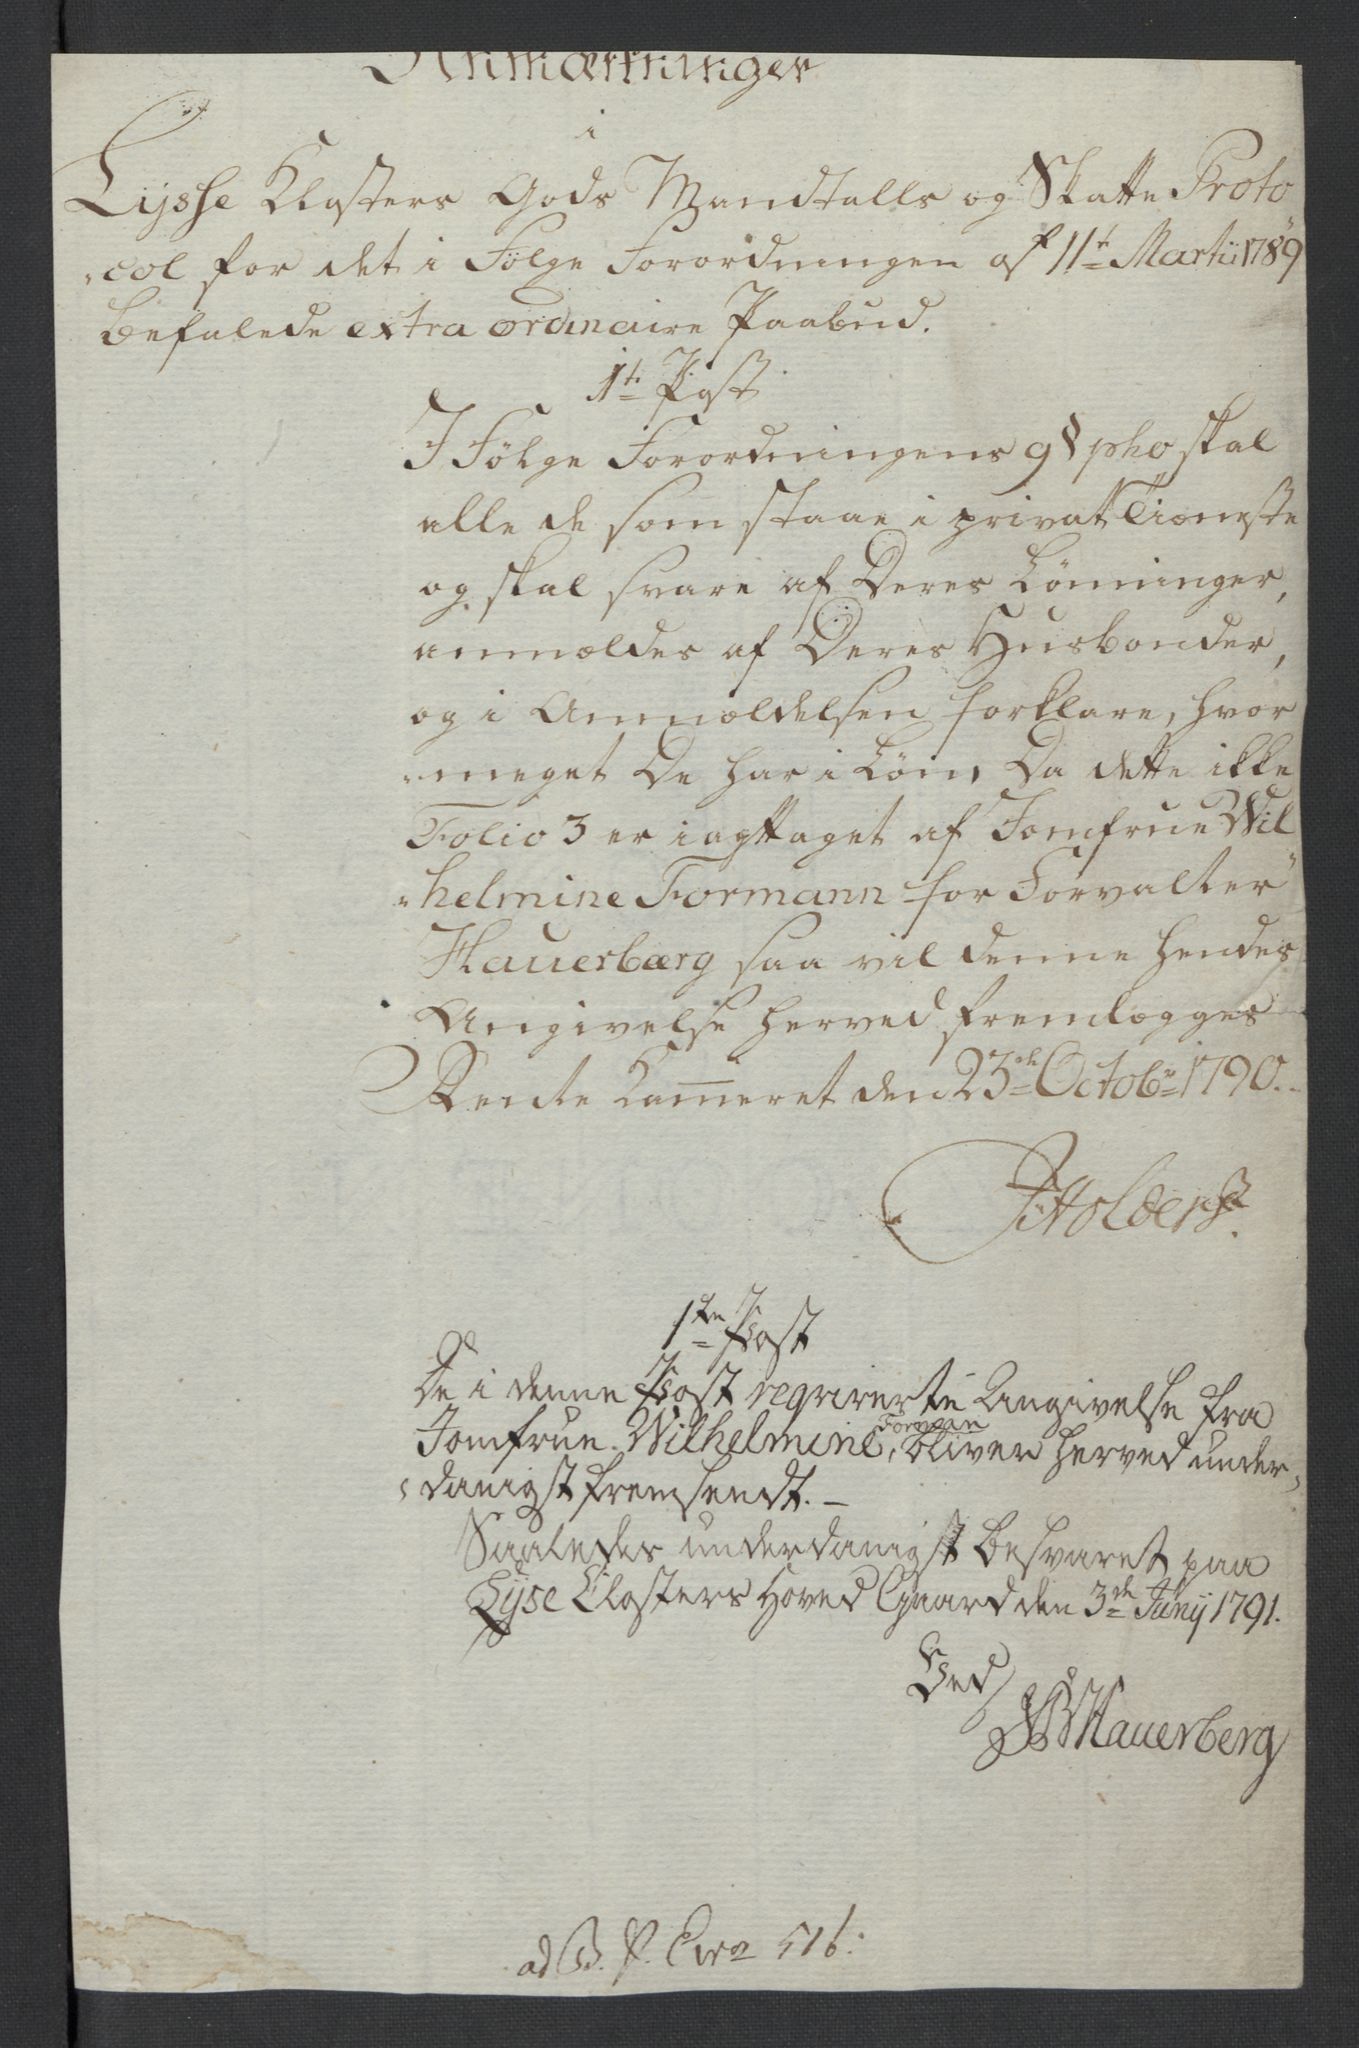 Anmærkninger
i
Lysse Klosters Gods Mandtalls og Skatte Proto
col for det i Følge Forordningen af 11te Martii 1789
befalede extra ordinaire Paabud.
1te Post
I Følge Forordningens 9 § pho skal
alle de som staae i privat Tieneste
og skal svare af Deres Lønninger,
anmældes af Deres Husbonder,
og i Anmældelsen forklare, hvor
meget De har i Løn, Da dette ikke
Folio 3 er iagttaget af Jomfrue Wil
helmine Formann for Forvalter
Hauerbærg saa vil denne hendes
Angivelse herved fremlægges
Rente Kammeret den 23de Octobr 1790.
Holbers
1ste Post
De i denne Post reqvirerte Angivelse fra
Jomfrue Wilhelmine Forman, bliver herved under
danigst fremsendt. —
Saaledes underdanigst besvaret paa
Lyse Closters Hoved Gaard den 3de Junij 1791.
Ved
Hauerberg
ad B. P. 516.